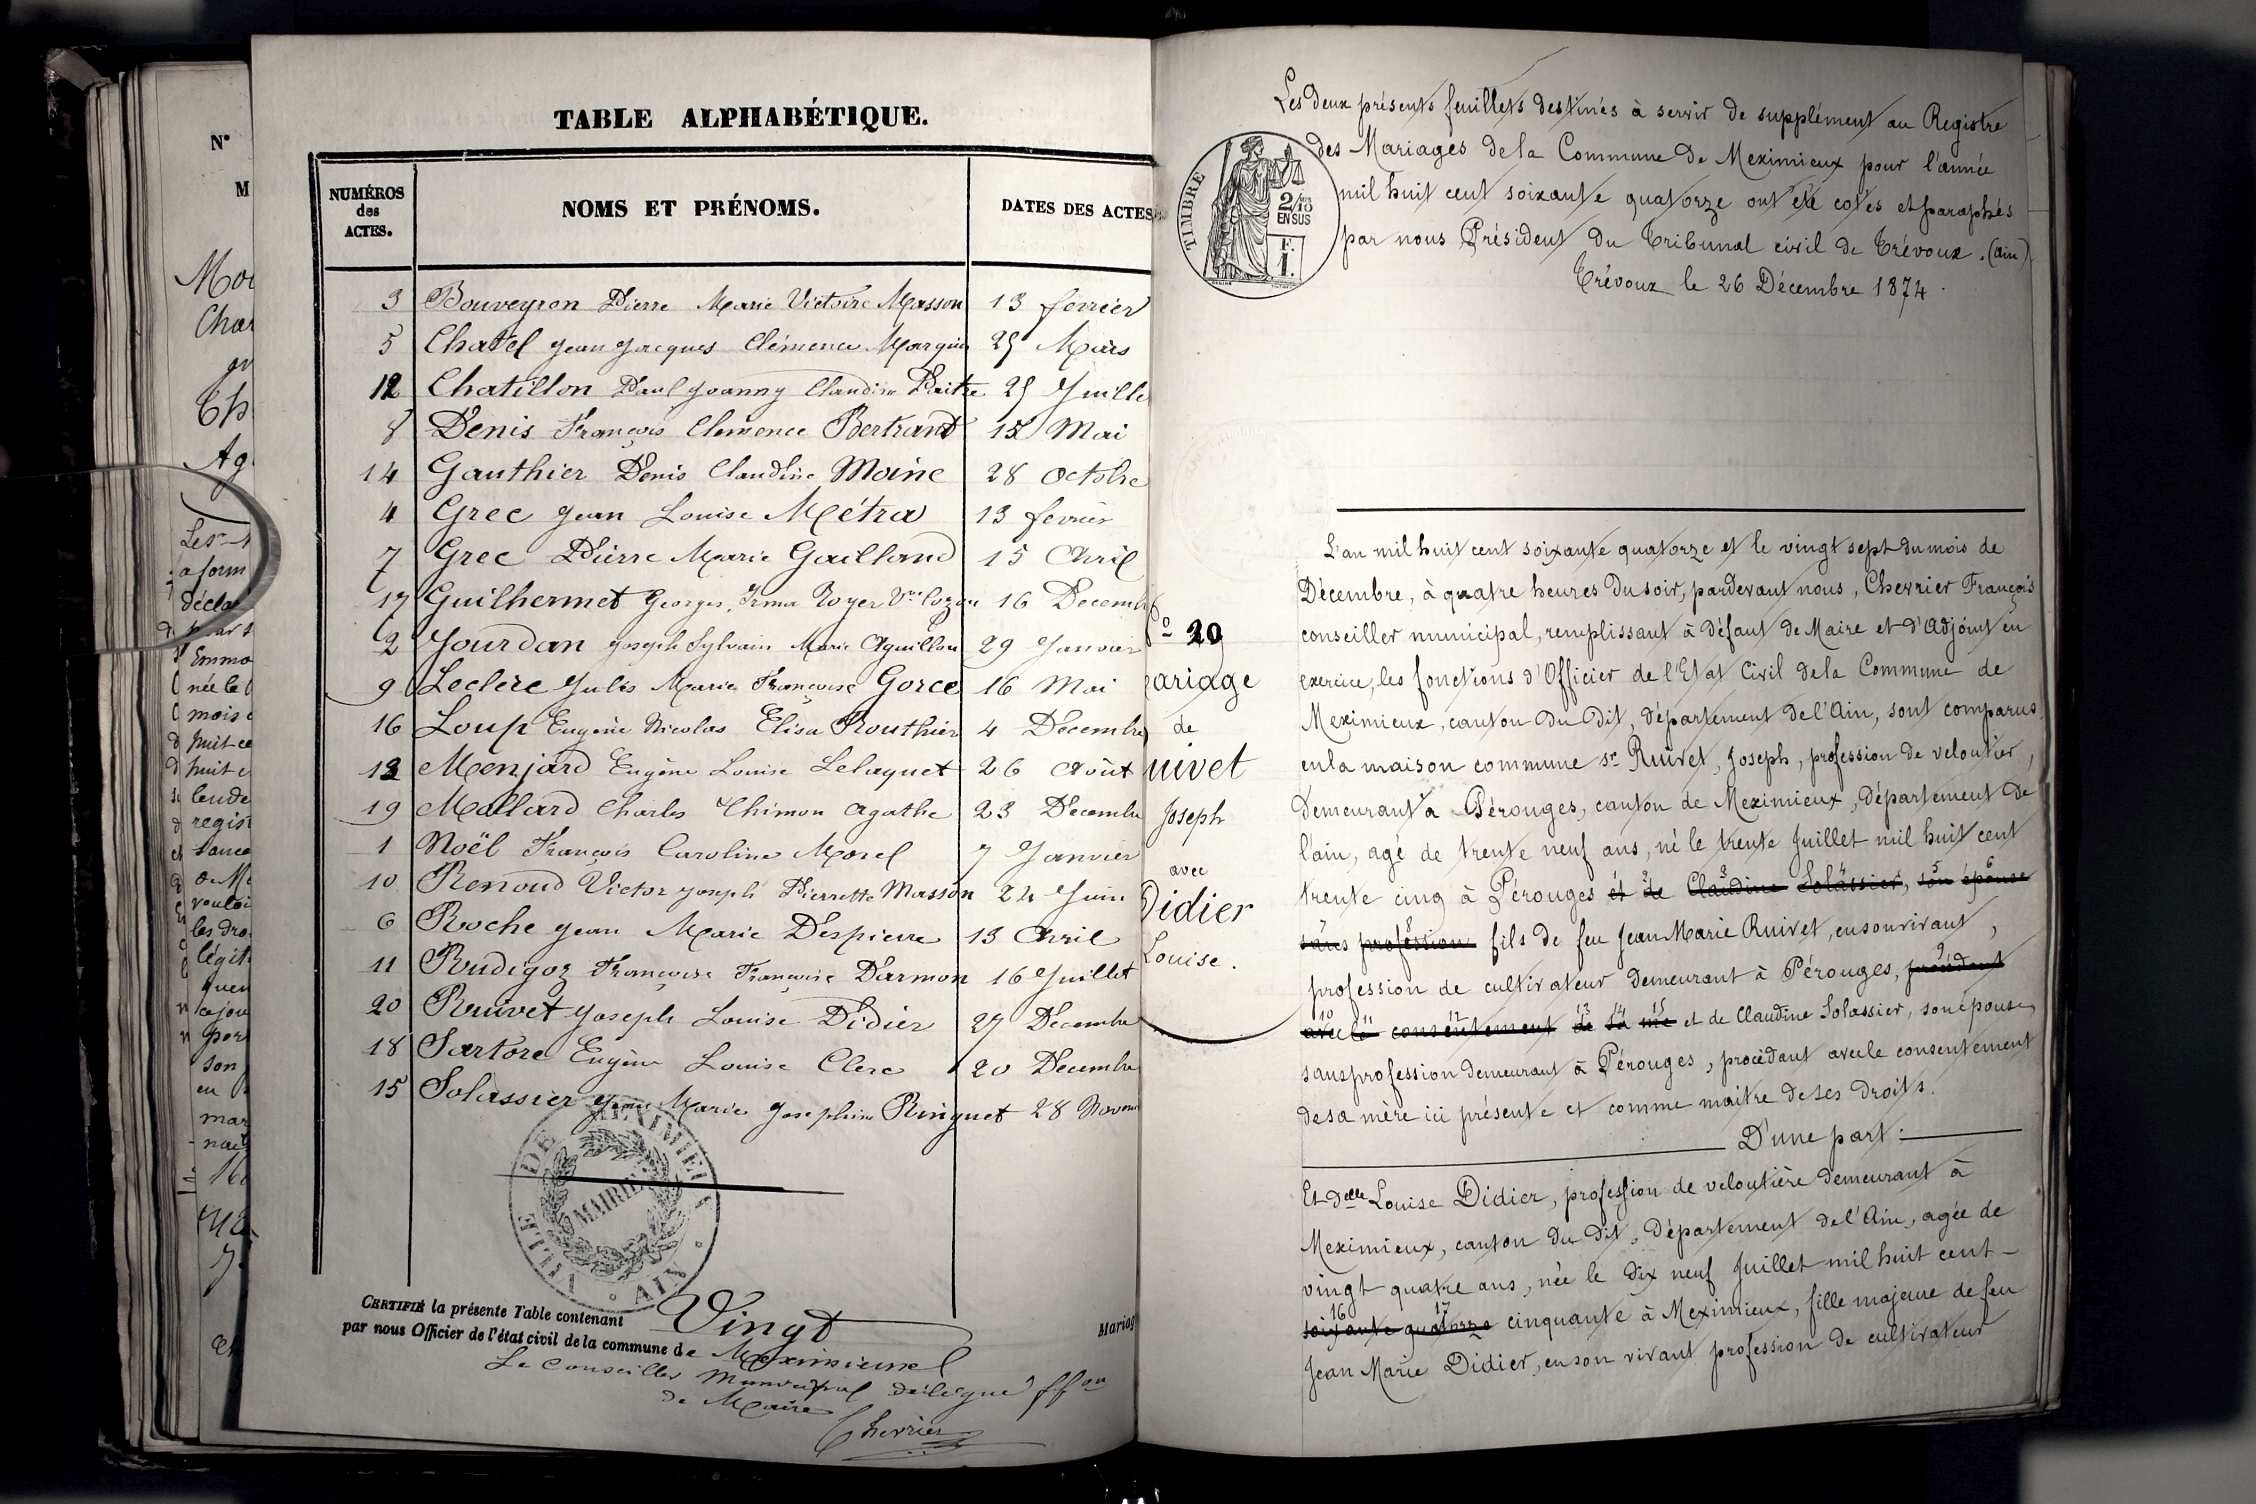 N°
M
Char
Th
Ag
Les
a form
décla
Emma
née le
mois
huit ce
huit c
registr
vouloi
les dro
légit
son
en
mar
TABLE ALPHABÉTIQUE.
NUMÉROS des ACTES. NOMS ET PRÉNOMS. DATES DES ACTES
3 Bouveyron Pierre Marie Victoire Masson 13 février
5 Chatel Jean Jacques Clémence Marguin 25 Mars
12 Chatillon Paul Joanny Claudine 25 Juille
8 Denis François Clémence Bertrand 15 Mai
14 Gauthier Denis Claudine Moine 28 Octobre
4 Grec Jean Louise Métra 13 février
7 Grec Pierre Marie Gailland 15 Avril
17 Guilhermet Georges, Irma Royer Vve 16 Decemb
2 Jourdan Joseph Sylvain Marie Aguillon 29 Janvier
9 Leclerc Jules Marie Françoise Gorce 16 Mai
16 Loup Eugène Nicolas Elisa Routhier 4 Décembre
13 Menjard Eugène Louise Lelaquet 26 Août
19 Mollard Charles Thimon Agathe 23 Décembre
1 Noël François Caroline Morel 7 Janvier
10 Renoud Victor Joseph Pierrette Masson 24 Juin
6 Roche Jean Marie Despierre 13 Avril
11 Rudigoz Françoise Darmon 16 Juillet
20 Ruivet Joseph Louise Didier 27 Décembre
18 Sartore Eugène Louise Clerc 20 Décembre
15 Solassier Jean Marie Josephine Ringuet 28 Novem
VILLE DE MEXIMIEUX
MAIRIE
AIN
CERTIFIÉ la présente Table contenant Vingt
par nous Officier de l'état civil de la commune de Meximieux
Le Conseiller Municipal délégué ffon
de Maire
Chevrier
Mariag
Les deux présents feuillets destinés à servir de supplément au Registre
des Mariages de la Commune de Meximieux pour l'année
mil huit cent soixante quatorze ont été cotés et paraphés
par nous Président du Tribunal civil de Trévoux. (ain)
Trévoux le 26 Décembre 1874.
TIMBRE
2/10
EN SUS
F.
1.
o 20
ariage
de
uivet
Joseph
avec
Didier
Louise.
L'an mil huit cent soixante quatorze et le vingt sept du mois de
Décembre, à quatre heures du soir, pardevant nous, Chevrier François
conseiller municipal, remplissant à défaut de Maire et d'Adjoint en
exercice, les fonctions d'Officier de l'Etat Civil de la Commune de
Meximieux, canton du dit, département de l'Ain, sont comparus
en la maison commune sr Ruivet, Joseph, profession de veloutier,
demeurant à Pérouges, canton de Meximieux, département de
l'ain, agé de trente neuf ans, né le trente Juillet mil huit cent
trente cinq à Pérouges et de Claudine Solassier, son épouse
sans profession fils de feu Jean Marie Ruivet, en son vivant,
profession de cultivateur demeurant à Pérouges, procédant
avec le consentement de sa me et de Claudine Solassier, son épouse,
sans profession demeurant à Pérouges, procédant avec le consentement
de sa mère ici présente et comme maitre de ses droits.
D'une part:
Et delle Louise Didier, profession de veloutière demeurant à
Meximieux, canton du dit, Département de l'Ain, agée de
vingt quatre ans, née le dix neuf Juillet mil huit cent
soixante quatorze cinquante à Meximieux, fille majeure de feu
Jean Marie Didier, en son vivant profession de cultivateur